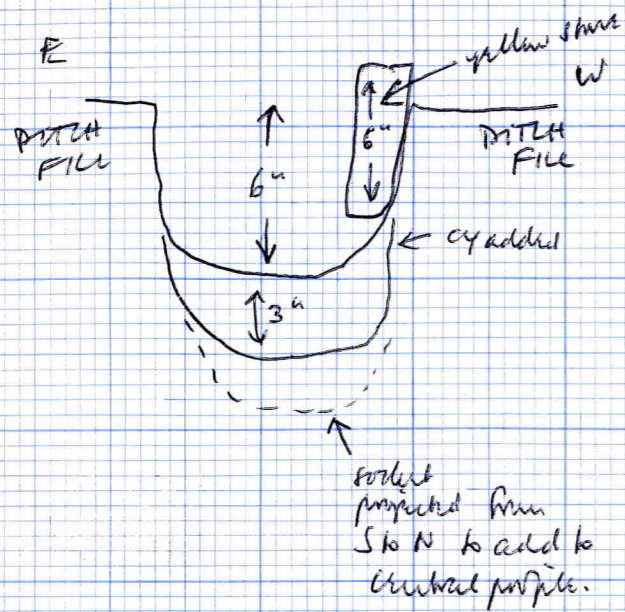 E
yellow stone
W
DITCH
FILL
6"
6"
DITCH
FILL
CY added
3"
socket
projected from
S to N to add to
central profile.